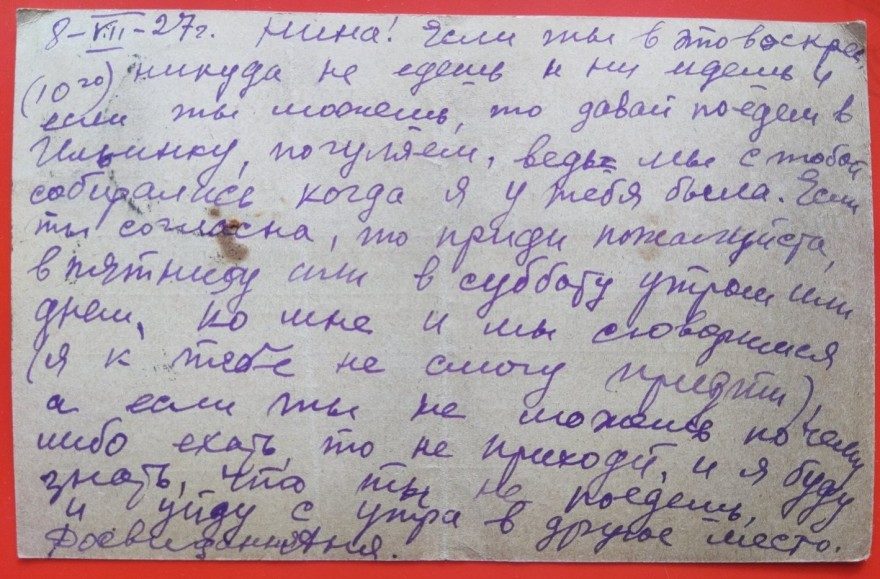 8-VII-27г. Нина! Если ты в это воскрес.
(10го) никуда не едешь и ни идешь и
если ты можешь, то давай поедем в
Ильинку, погуляем, ведь мы с тобой
собирались когда я у тебя была. Если
ты согласна, то приди пожалуйста,
в пятницу или в субботу утром или
днем, ко мне и мы сговоримся
(я к тебе не смогу придти),
а если ты не можешь почему
либо ехать, то не приходи, и я буду
знать, что ты не поедешь,
и уйду с утра в другое место.
Досвидания Аня.